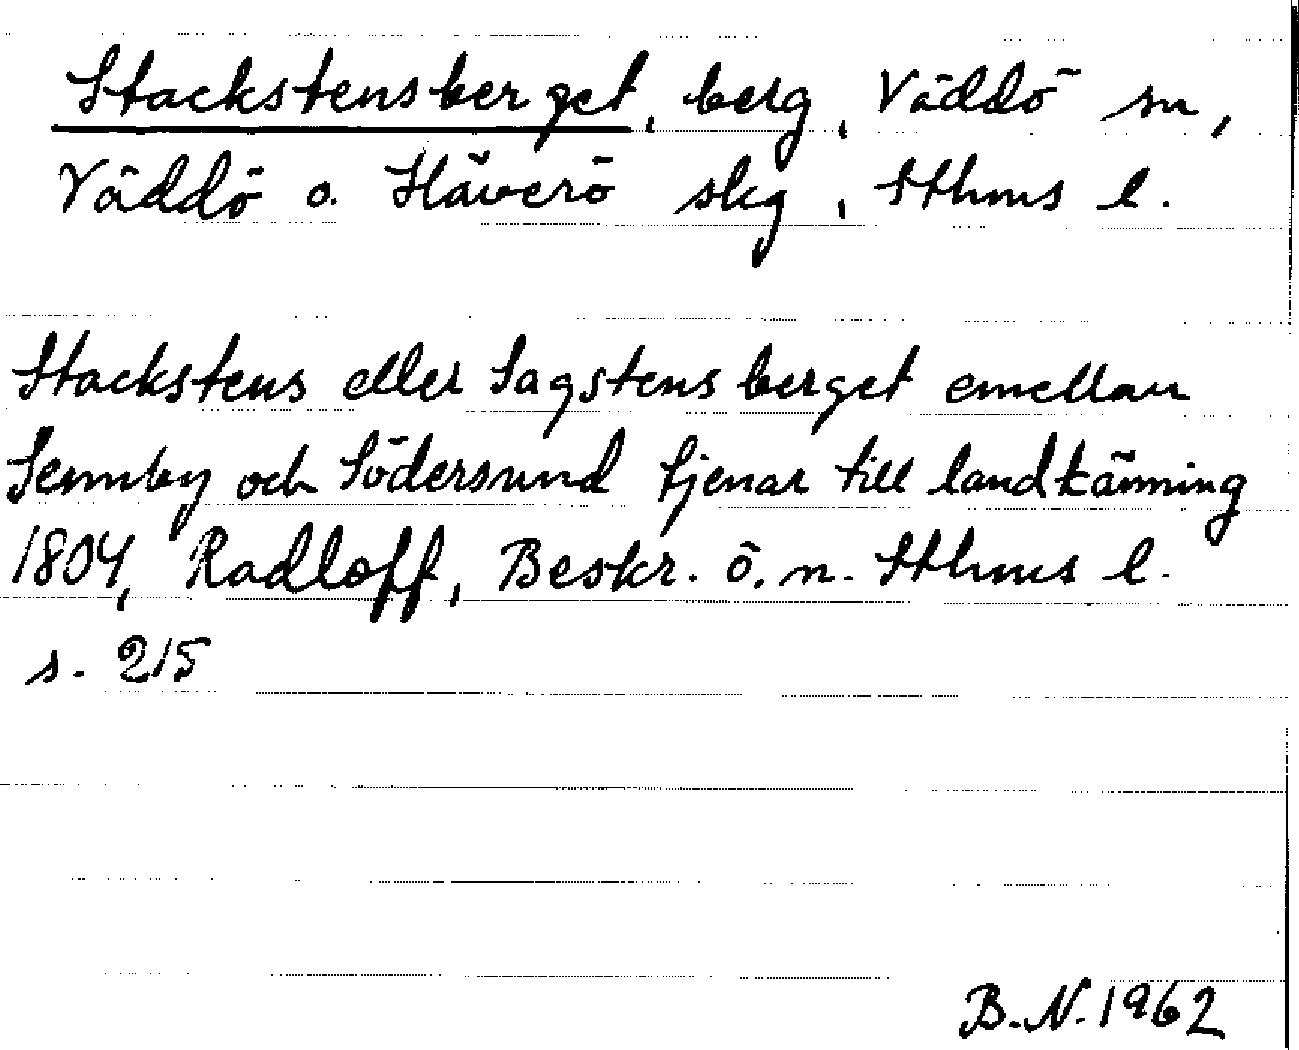 Stackstensberget, berg, Väddö sn,
Väddö o. Häverö skg, Sthms l.
Stackstens eller Sagstensberget emellan
Senneby och Södersund tjenar till landtkänning
1804, Radloff, Beskr. ö. n. Sthms l.
s. 215
B.N. 1962